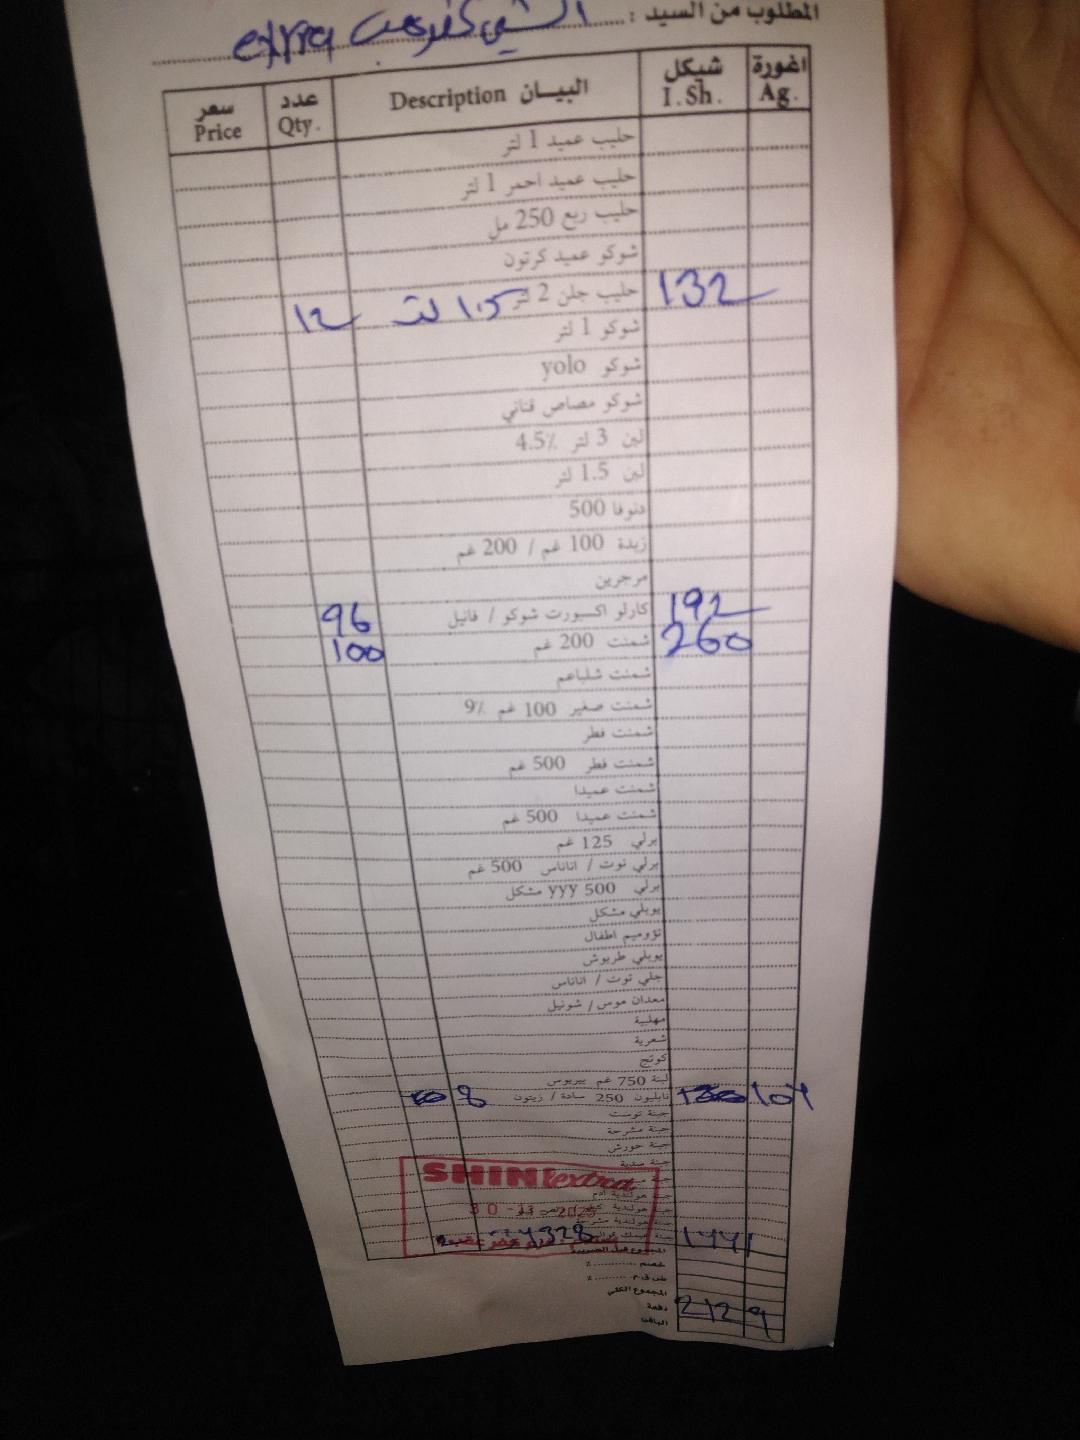 المطلوب من السيد : الشني كفرعقب extra
سعر عدد البيـــان Description شيكل اغورة
Price Qty. I.Sh. Ag.
حليب عميد 1 لتر
حليب عميد احمر 1 لتر
حليب ربع 250 مل
شوكو عميد كرتون
12 حليب جلن 2 لتر 1.5 لتر 132
شوكو 1 لتر
شوكو yolo
شوكو مصاص قناني
لبن 3 لتر 4.5٪
لبن 1.5 لتر
دنوفا 500
زبدة 100 غم / 200 غم
مرجرين
96 كارلو اكسبورت شوكو / فانيل 192
100 شمنت 200 غم 260
شمنت شلباعم
شمنت صغير 100 غم 9٪
شمنت فطر
شمنت فطر 500 غم
شمنت عميدا
شمنت عميدا 500 غم
برلي 125 غم
برلي توت / اناناس 500 غم
برلي 500 yyy مشكل
يوبلي مشكل
تؤوميم اطفال
يوبلي طربوش
جلي توت / اناناس
معدان موس / شونيل
مهلبية
شعرية
كوتج
لبنة 750 غم بيريوس
8 نابليون 250 سادة / زيتون 104
جبنة توست
جبنة مشرحة
جبنة حورش
جبنة صدية
SHINI extra
جبنة هولندية ادم
30 - 11 - 2025
جبنة هولندية
328 1441
المجموع قبل الضريبة
خصم .......... ٪
ض.ق.م .......... ٪
المجموع الكلي
دفعة 2129
الباقي